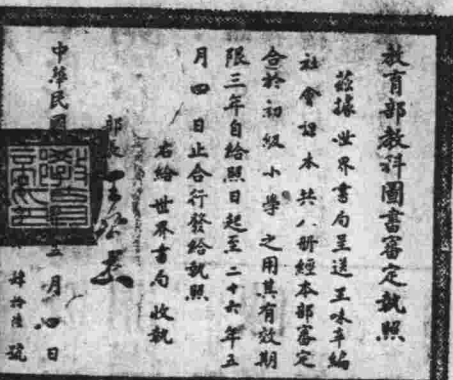 教育部教科圖書審定執照
茲據世界書局呈送王味辛編
社會課本共八册經本部審定
合於初級小學之用其有效期
限三年自給照日起至二十六年五
月四日止合行發給執照
右給世界書局收執
部長王世杰
中華民國
月 日
號